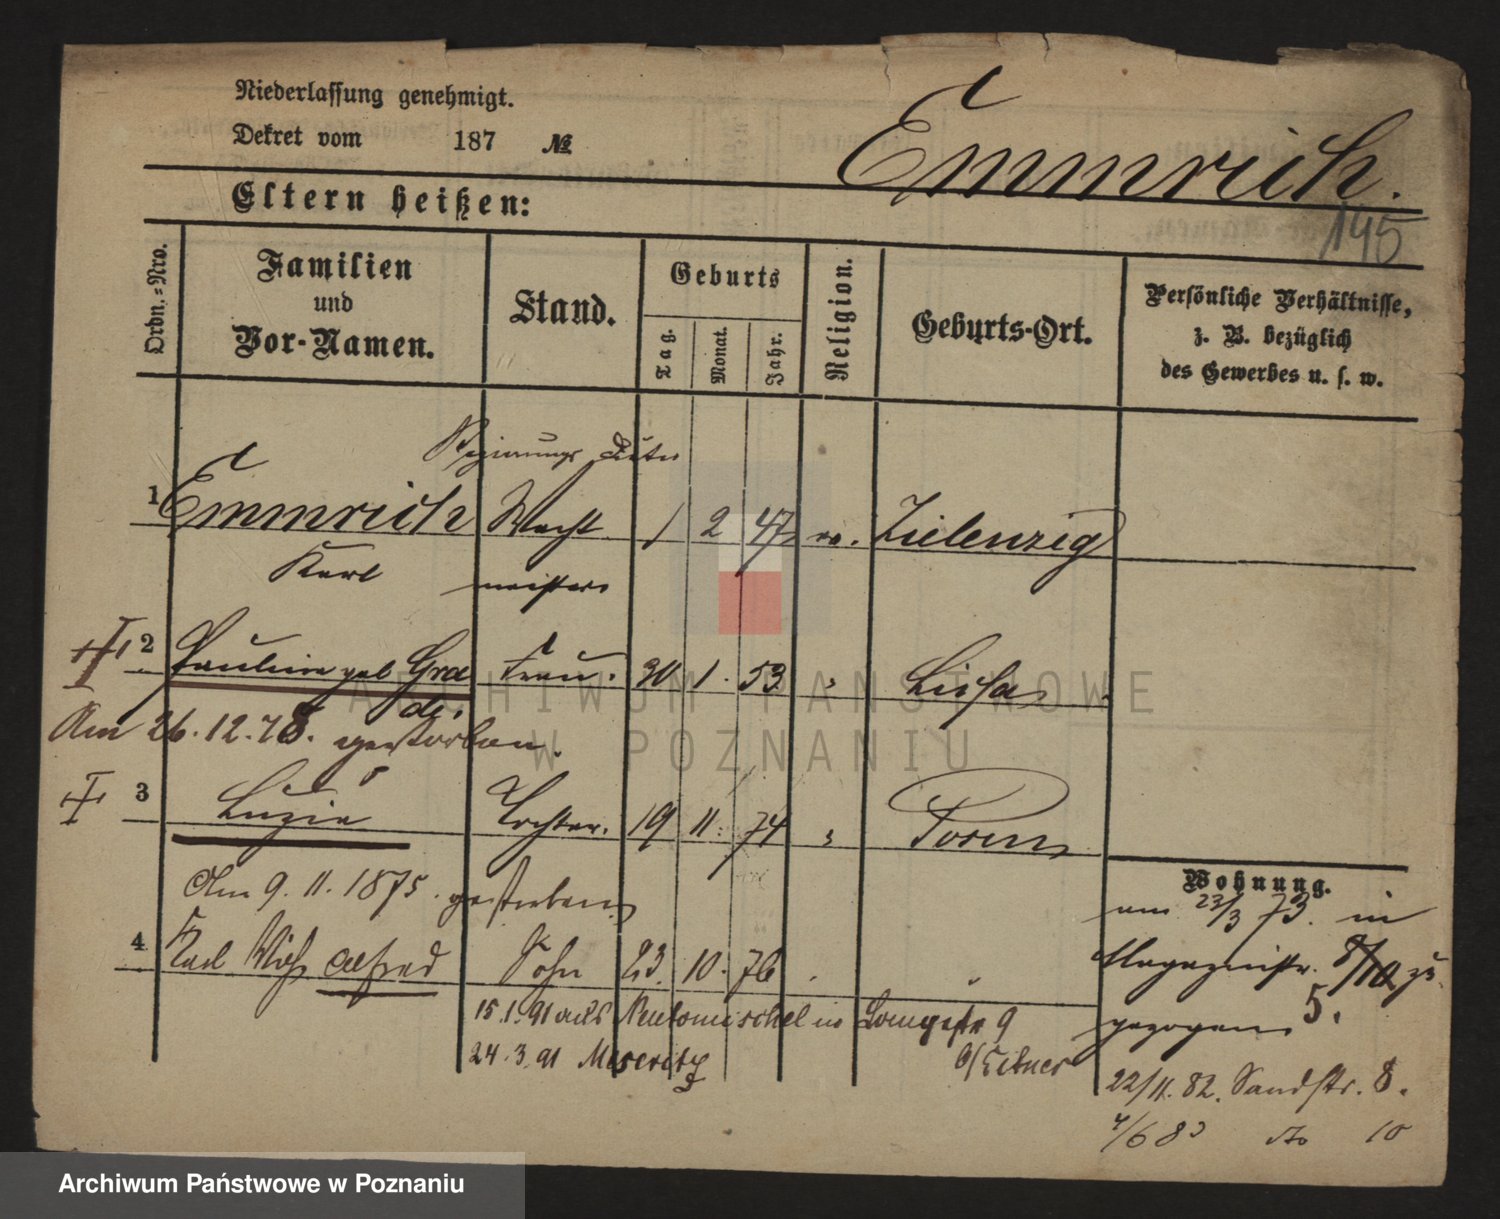 Niederlassung genehmigt.
Dekret vom 187 №
Emmrich.
Eltern heißen:
195
Ordn.-Nro.
Familien und Vor-Namen.
Stand.
Geburts
Tag.
Monat.
Jahr.
Religion.
Geburts-Ort.
Persönliche Verhältnisse, z. B. bezüglich des Gewerbes u. s. w.
Regierungs
1 Emmrich Wacht 1 2 47 ev. Zielenzig
Karl meister
2 Pauline geb Gra Frau. 30 1. 53 Lissa
de.
Am 26.12.78. gestorben.
3 Luzie Tochter. 19 11. 74 Posen
Am 9. 11. 1875. gestorben
4 Karl Wilh Alfred Sohn 23. 10. 76
15.1.91 aus Neutomischel in Langestr 9
24.3.91 Meseritz
b/Eitner
Wohnung.
am 23/3 73. in
Magazinstr. 8/10 zu
gezogen 5.
22/11. 82. Sandstr. 8.
4/6 83 dto 10
ARCHIWUM PAŃSTWOWE
W POZNANIU
Archiwum Państwowe w Poznaniu